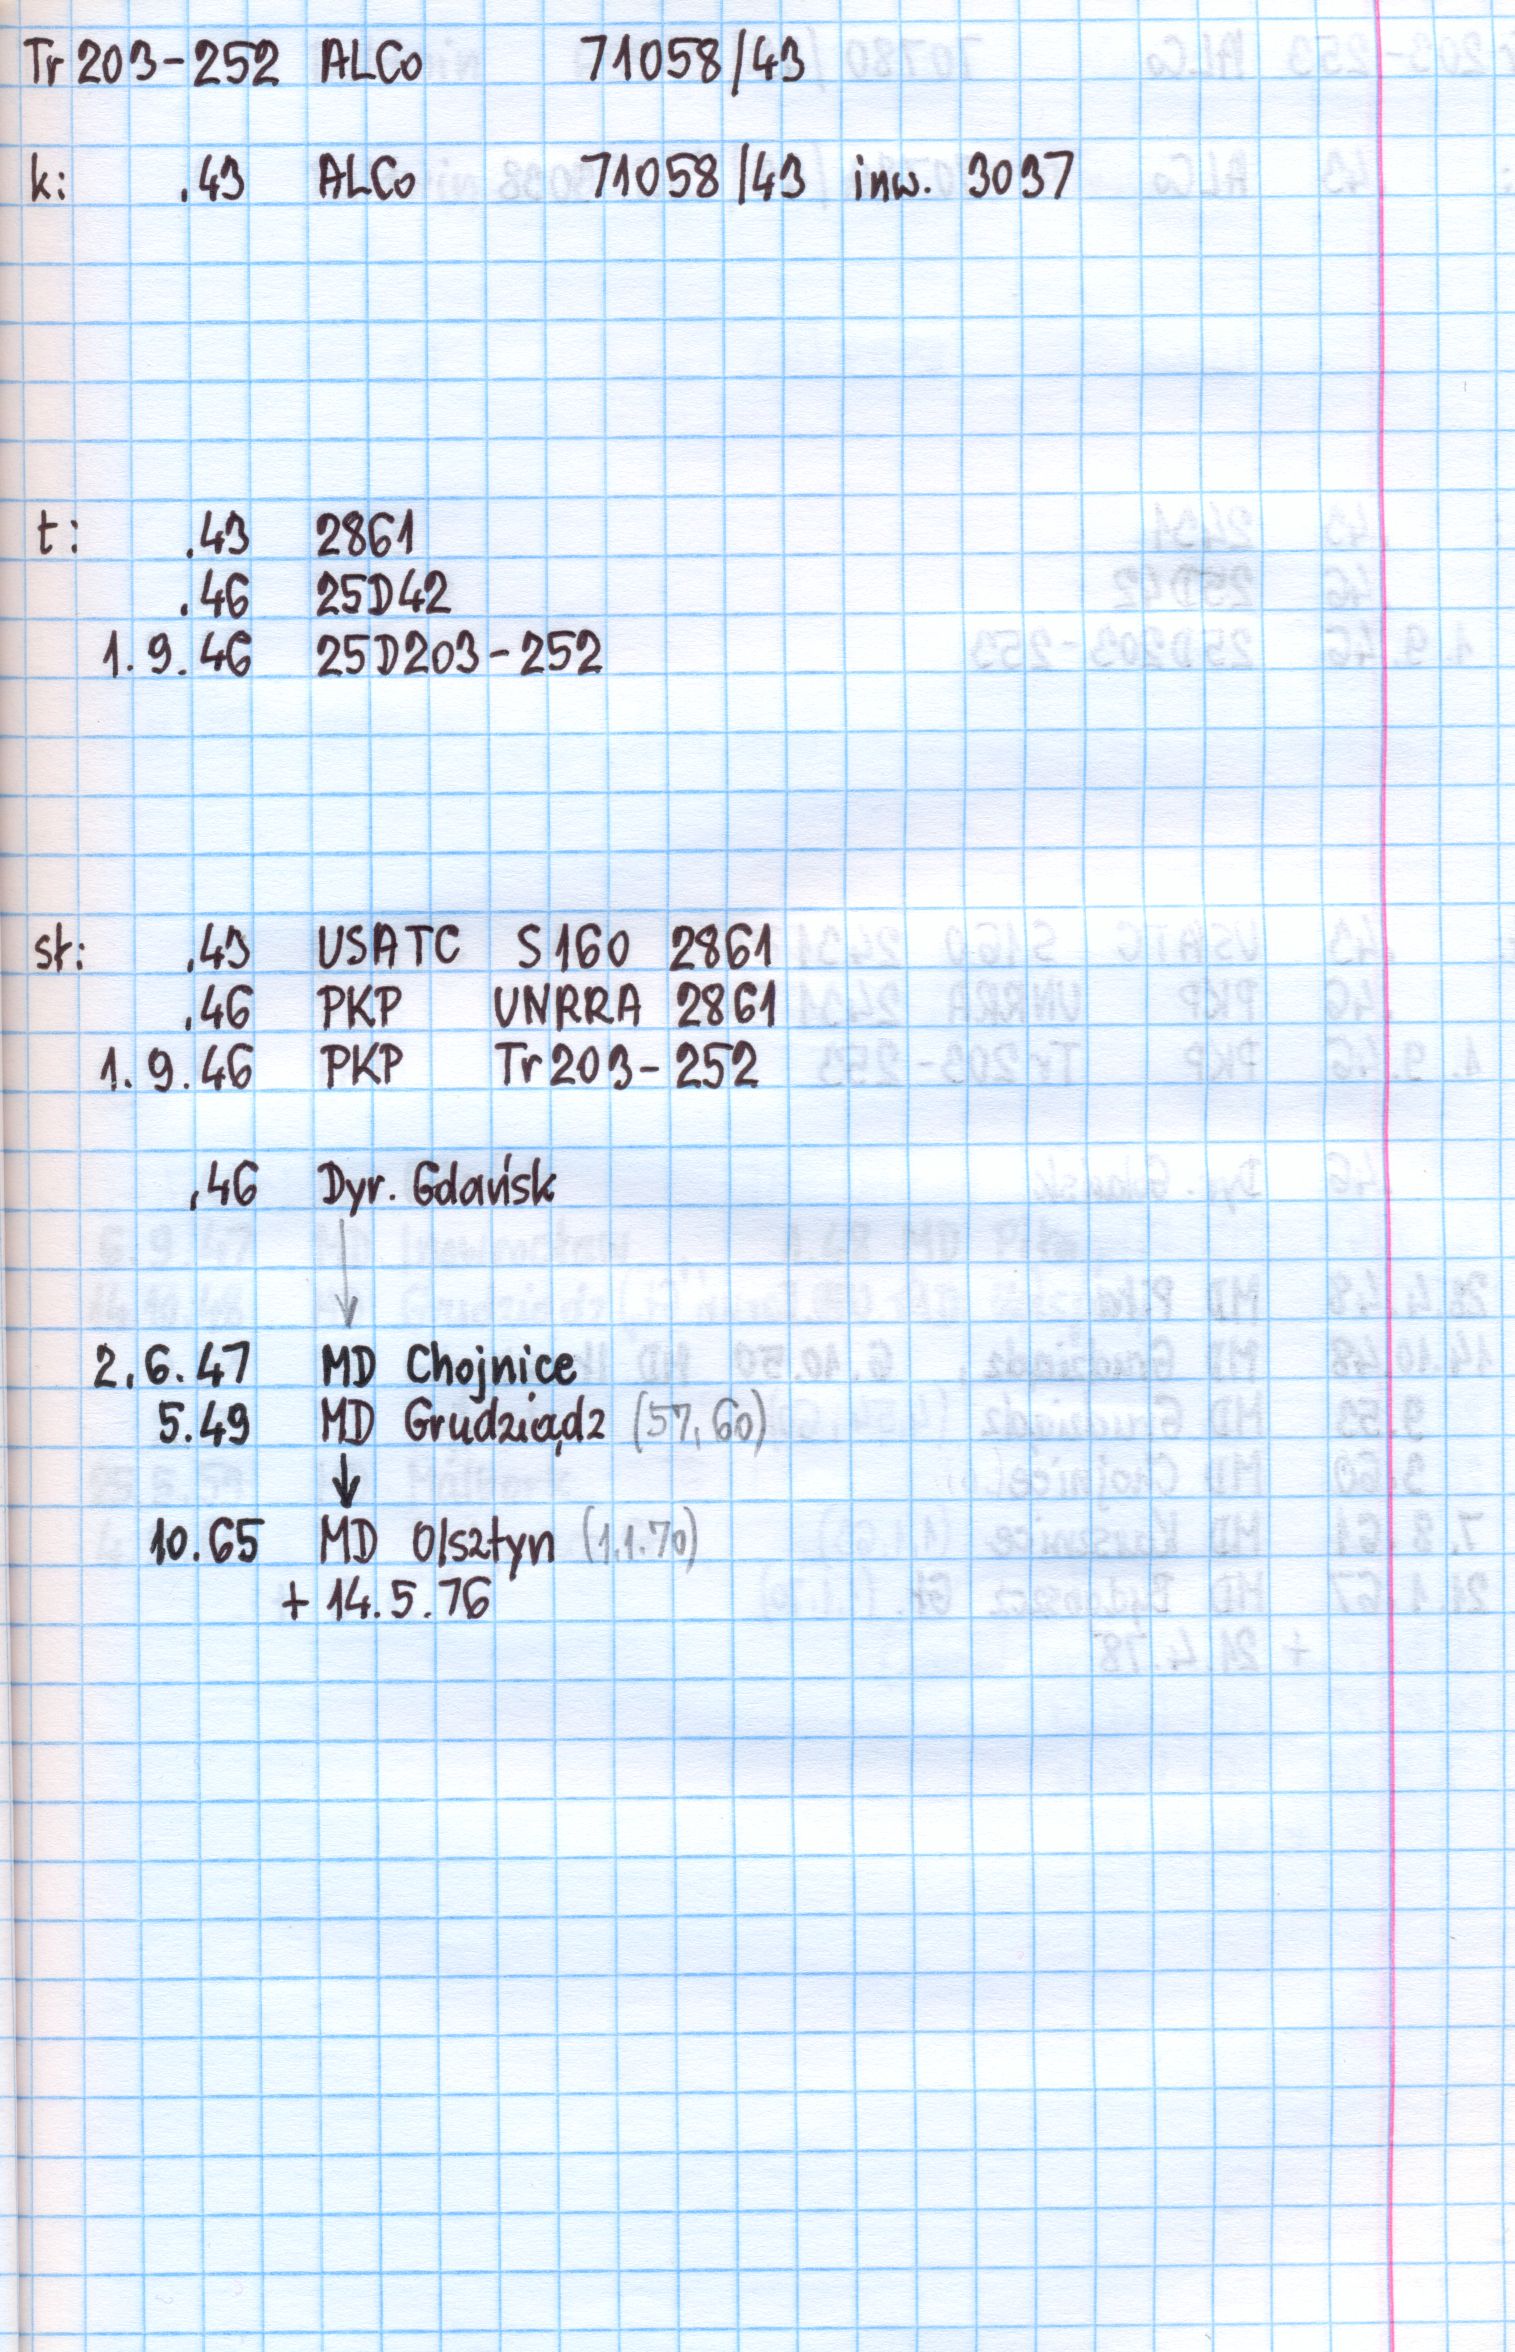 Tr 203-252 ALCo 71058/43
k: .43 ALCo 71058/43 inw. 3037
t: .43 2861
.46 25D42
1.9.46 25D203-252
sł: .43 USATC S160 2861
.46 PKP UNRRA 2861
1.9.46 PKP Tr 203-252
.46 Dyr. Gdańsk
2.6.47 MD Chojnice
5.49 MD Grudziądz (57, 60)
10.65 MD Olsztyn (1.1.70)
+ 14.5.76